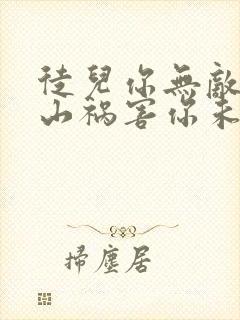 徒兒你無敵
山祸害你未
掃塵居